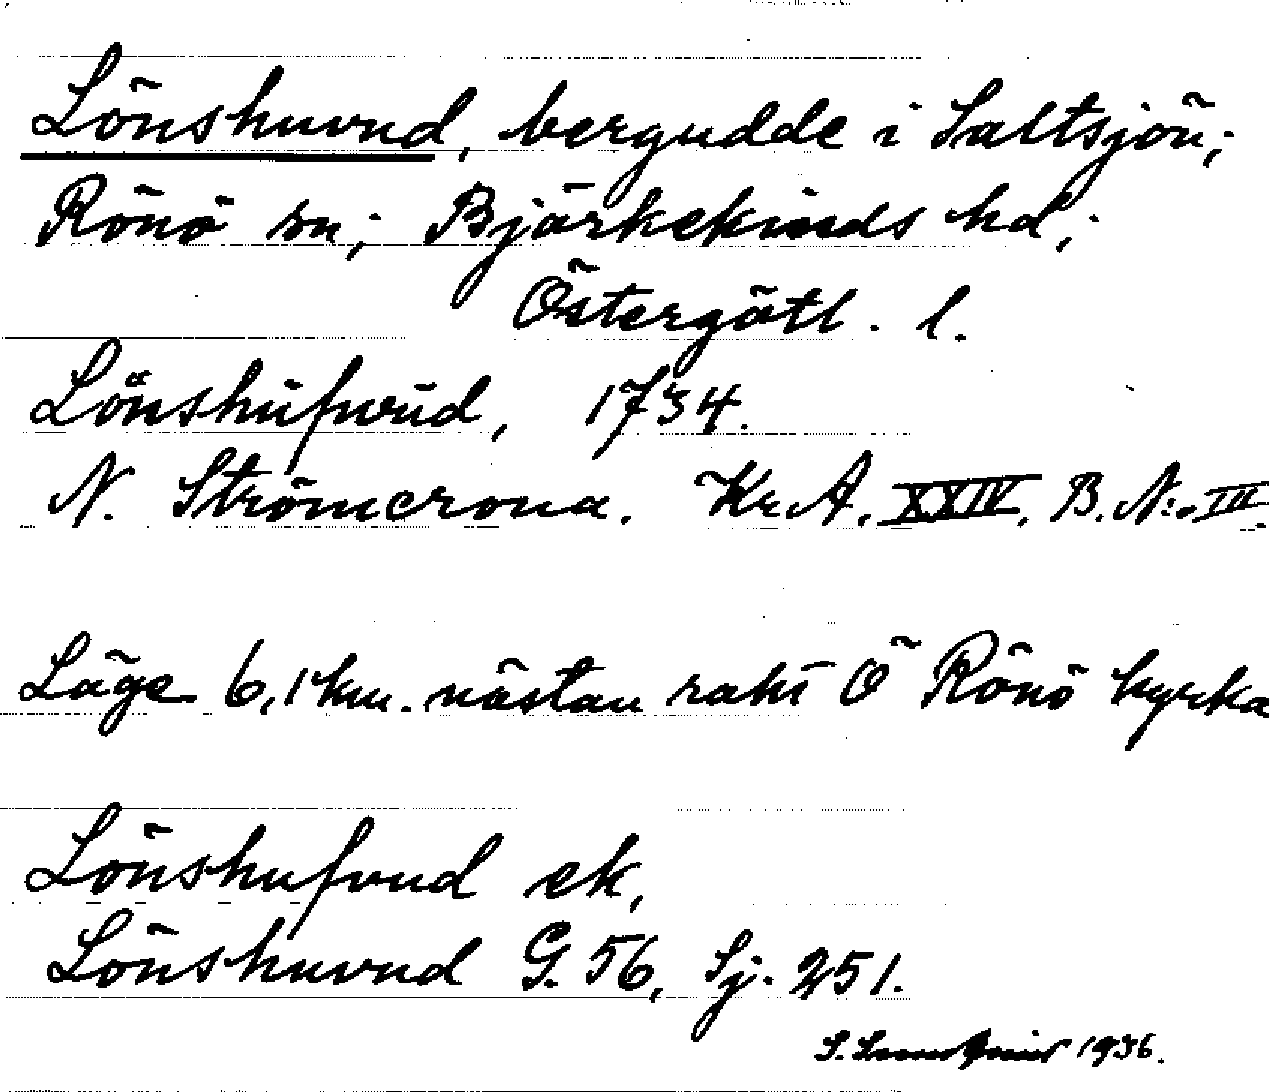 Lönshuvud, bergudde i Saltsjön;
Rönö sn; Björkekinds hd;
Östergötl. l.
Lönshüfwüd, 1734.
N. Strömcrona. Kr.A. XXIV. B. N:o III
Läge 6,1 km. nästan rakt Ö Rönö kyrka
Lönshufvud ek,
Lönshuvud G. 56, Sj. 251.
S. 1936.